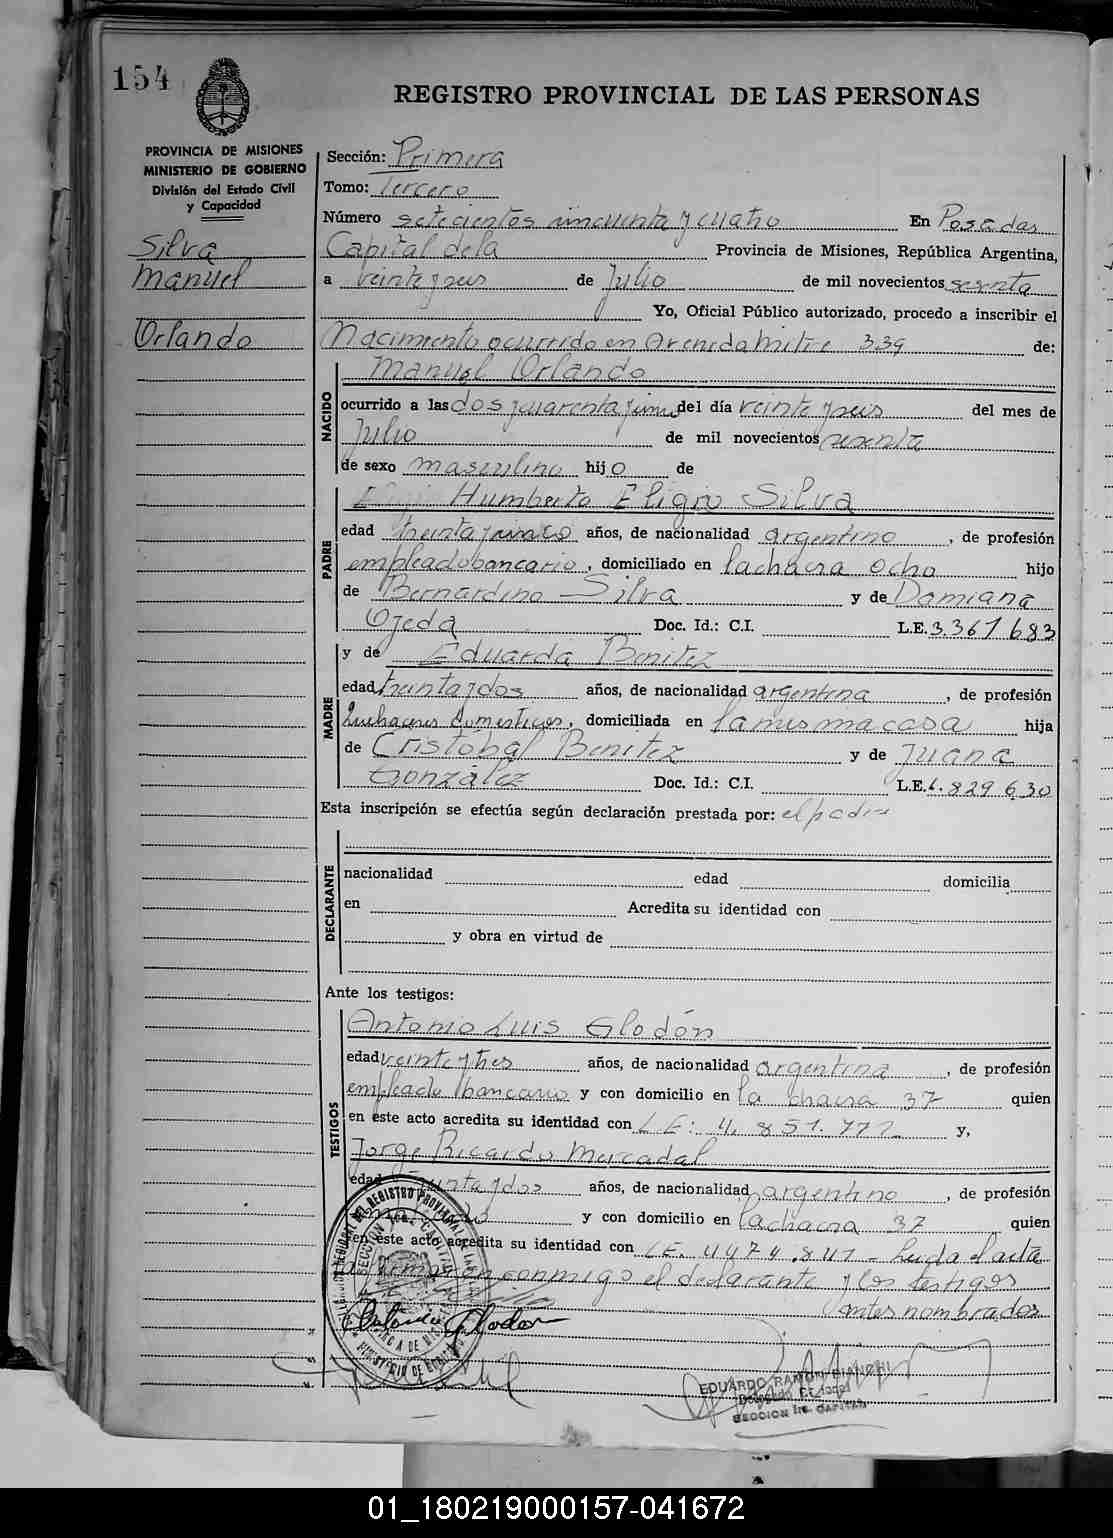 154
REGISTRO PROVINCIAL DE LAS PERSONAS
PROVINCIA DE MISIONES
MINISTERIO DE GOBIERNO
División del Estado Civil
y Capacidad
Silva
Manuel
Orlando
Sección: Primera
Tomo: Tercero
Número setecientos cincuenta y cuatro En Posadas
Capital de la Provincia de Misiones, República Argentina,
a veinte y seis de Julio de mil novecientos sesenta
Yo, Oficial Público autorizado, procedo a inscribir el
Nacimiento ocurrido en Avenida Mitre 339 de:
NACIDO
Manuel Orlando
ocurrido a las dos y cuarenta y cinco del día veinte y seis del mes de
Julio de mil novecientos sesenta
de sexo masculino hijo de
PADRE
Humberto Eligio Silva
edad treinta y cinco años, de nacionalidad argentino, de profesión
empleado bancario, domiciliado en la chacra ocho hijo
de Bernardino Silva y de Damiana
Ojeda Doc. Id.: C.I. L.E. 3.361 683
MADRE
y de Eduarda Benitez
edad treinta y dos años, de nacionalidad argentina, de profesión
quehaceres domesticos, domiciliada en la misma casa hija
de Cristobal Benitez y de Juana
González Doc. Id.: C.I. L.E. 6.829 630
Esta inscripción se efectúa según declaración prestada por: el padre
DECLARANTE
nacionalidad edad domicilia
en Acredita su identidad con
y obra en virtud de
Ante los testigos:
TESTIGOS
Antonio Luis Glodón
edad veinte y tres años, de nacionalidad argentina, de profesión
empleado bancario y con domicilio en la chacra 37 quien
en este acto acredita su identidad con L E: 4. 851. 772 y,
Jorge Ricardo Mercadal
edad y dos años, de nacionalidad argentino, de profesión
y con domicilio en la chacra 37 quien
en este acto acredita su identidad con L E. 4474.841 - Leida el acta
firman conmigo el declarante y los testigos
antes nombrados
EDUARDO RAMON BIANCHI
SECCION 1ra. CAPITAL
01_180219000157-041672